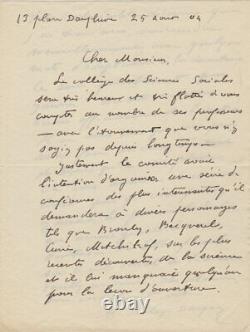 13 place Dauphine 25 aout 04
Cher Monsieur,
Le collège des Sciences Sociales
sera très heureux et très flatté de vous
compter au nombre de ses professeurs
— avec l'étonnement que vous n'y
soyiez pas depuis longtemps —
Justement le comité avait
l'intention d'organiser une série de
conférences des plus intéressantes qu'il
demandera à divers personnages
tels que Branly, Becquerel,
Curie, Metchnikof, sur les plus
récentes découvertes de la science
et il lui manquait quelqu'un
pour la leçon d'ouverture.